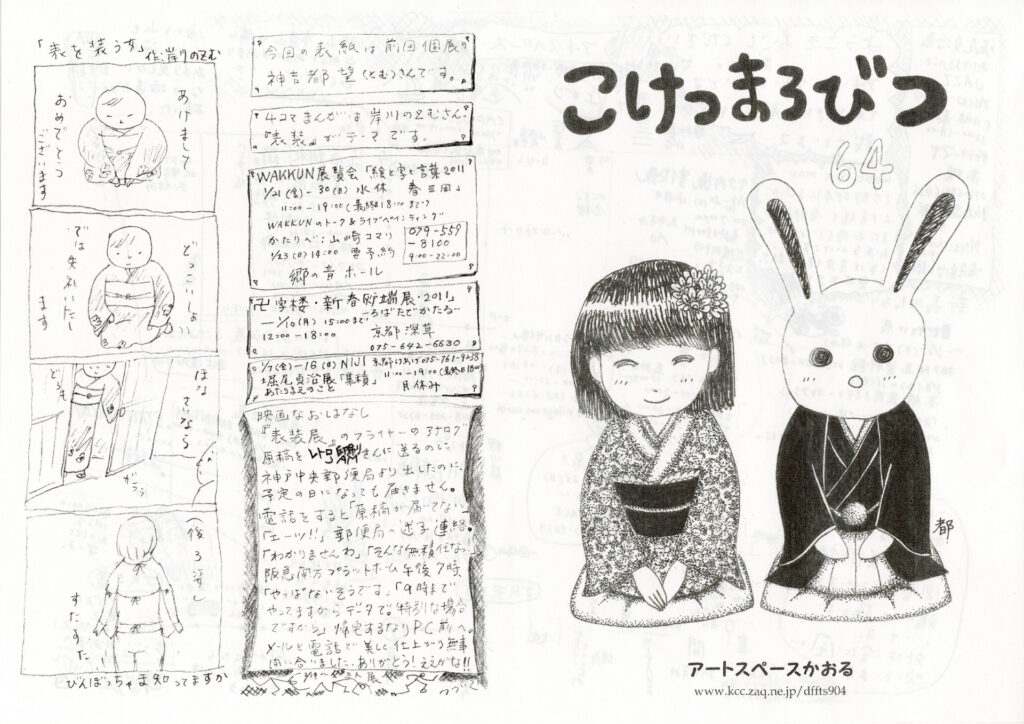 こけつまろびつ
64
都
アートスペースかおる
www.kcc.zaq.ne.jp/dffts904
今回の表紙は前回個展の
神吉都望(とむ)さんです。
4コマまんがは岸川のぞむさん。
『表装』がテーマです。
WAKKUN展覧会「絵と字と言葉2011
1/21(金)-30(日)水休 春三田」
11:00-19:00(最終日18:00まで)
WAKKUNのトーク&ライブペインティング
かたりべ:山崎コマリ
1/23(日)14:00 要予約
079-559
-8100
9:00-22:00
郷の音ホール
卍字楼・新春炉端展・2011」
ーろばたでかたるー
-1/10(月)15:00まで
12:00-18:00 京都深草
075-642-6630
1/7(金)-16(日)NIJI 京都けあげ075-761-9238
堀尾貞治展「集積」11:00-19:00(最終日18:00)
あたりまえのこと 月休み
映画なおはなし
『表装展』のフライヤーのアナログ
原稿をレトロ印刷JAMさんに送るのに
神戸中央郵便局より出したのに、
予定の日になっても届きません。
電話をすると「原稿が届いてない」
「エーッ!!」郵便局へ迷子連絡。
「わかりませんわ」「そんな無責任な」
阪急南方プラットホーム午後7時
「やっぱないそうです」「9時まで
やってますからデータで。特別な場合
ですから」帰宅するなりPC前へ。
メールと電話で美しく仕上がり無事
間に合いました。ありがとう!ええかな!!
つづく
「表を装うす」作:岸川のぞむ
あけまして
おめでとう
ございます
どっこいしょ
では失礼いたし
ます
ほな
さいなら
どうも
がらら
後ろ姿
すたすた
びんぼっちゃま知ってますか